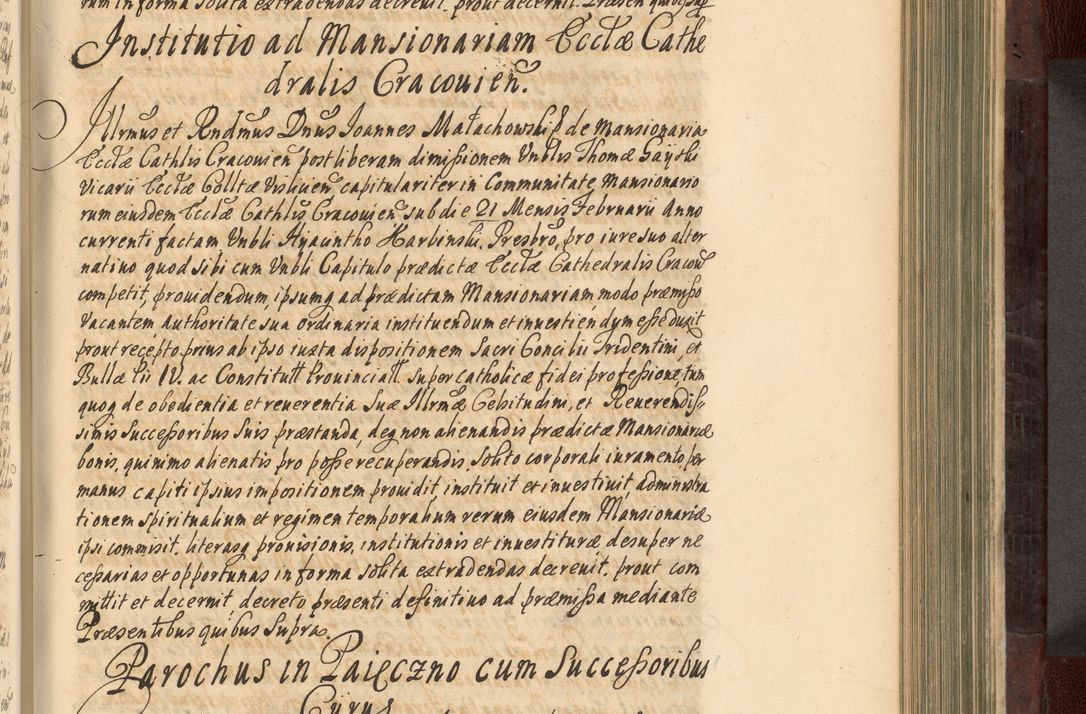 rum in forma solita extradendas decreuit, prout decernit. Præsen quibus sup
Institutio ad Mansionariam Ecclæ Cathe
dralis Cracouien.
Illrmus et Rndmus Dnus Joannes Małachowski E de Mansionaria
Ecclæ Cathlis Cracouien post liberam dimissionem Vnblis Thomæ Gayski
Vicarii Ecclæ Colltæ Vislicien capitulariter in Communitate Mansionario
rum eiusdem Ecclæ Cathlis Cracouien sub die 21 Mensis Februarii Anno
currenti factam Vnbli Hyacintho Harbinski Presbro, pro iure suo alter
natiuo quod sibi cum Vnbli Capitulo prædictæ Ecclæ Cathedralis Cracou
competit, prouidendum, ipsumq ad prædictam Mansionariam, modo præmisso
Vacantem Authoritate sua ordinaria instituendum et inuestiendum esse duxit
prout recepto prius ab ipso iuxta dispositionem Sacri Concilii Tridentini, et
Bullæ Pii IV. ac Constitutt Prouinciall. super catholicæ fidei professione, tum
quoq de obedientia et reuerentia Suæ Illrmæ Celsitudini, et Reuerendis-
simis Successoribus Suis præstanda, deq non alienandis prædictæ Mansionariæ
bonis, quinimo alienatis pro posse recuperandis, solito corporali iuramento, per
manus capiti ipsius impositionem prouidit, instituit et inuestiuit, administra
tionem spiritualium et regimen temporalium rerum eiusdem Mansionariæ
ipsi commisit, literasq prouisionis, institutionis et inuestituræ desuper ne
cessarias et opportunas in forma solita extradendas decreuit, prout com
mittit et decernit, decreto præsenti definitiuo ad præmissa mediante
Præsentibus quibus Supra.
Parochus in Paięczno cum Successoribus